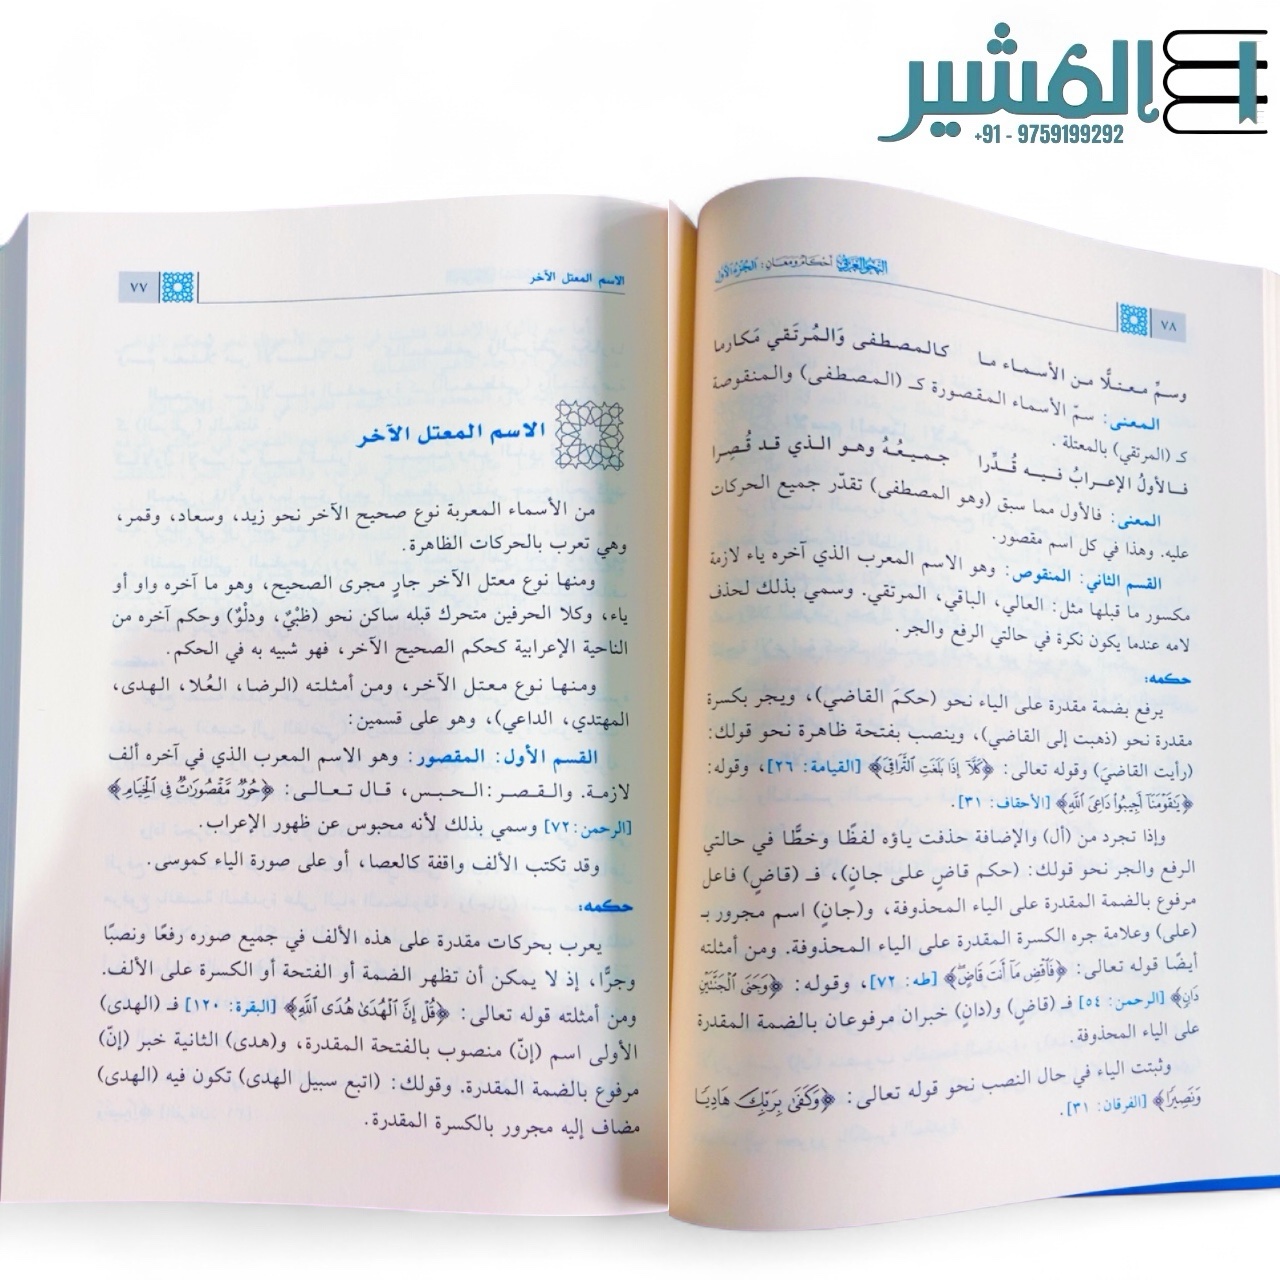 المشير
+91 - 9759199292
الاسم المعتل الآخر
٧٧
الاسم المعتل الآخر
من الأسماء المعربة نوع صحيح الآخر نحو زيد، وسعاد، وقمر،
وهي تعرب بالحركات الظاهرة.
ومنها نوع معتل الآخر جارٍ مجرى الصحيح، وهو ما آخره واو أو
ياء، وكلا الحرفين متحرك قبله ساكن نحو (ظبْيٌ، ودلْوٌ) وحكم آخره من
الناحية الإعرابية كحكم الصحيح الآخر، فهو شبيه به في الحكم.
ومنها نوع معتل الآخر، ومن أمثلته (الرضا، العُلا، الهدى،
المهتدي، الداعي)، وهو على قسمين:
القسم الأول: المقصور: وهو الاسم المعرب الذي في آخره ألف
لازمة. والقصر: الحبس، قال تعالى: ﴿حُورٌ مَّقْصُورَاتٌ فِي الْخِيَامِ﴾
[الرحمن: ٧٢] وسمي بذلك لأنه محبوس عن ظهور الإعراب.
وقد تكتب الألف واقفة كالعصا، أو على صورة الياء كموسى.
حكمه:
يعرب بحركات مقدرة على هذه الألف في جميع صوره رفعًا ونصبًا
وجرًّا، إذ لا يمكن أن تظهر الضمة أو الفتحة أو الكسرة على الألف.
ومن أمثلته قوله تعالى: ﴿قُلْ إِنَّ الْهُدَىٰ هُدَى اللَّهِ﴾ [البقرة: ١٢٠] فـ (الهدى)
الأولى اسم (إنّ) منصوب بالفتحة المقدرة، و(هدى) الثانية خبر (إنّ)
مرفوع بالضمة المقدرة. وقولك: (اتبع سبيل الهدى) تكون فيه (الهدى)
مضاف إليه مجرور بالكسرة المقدرة.
النحو العربي أحكام ومعان: الجزء الأول
٧٨
وسمِّ معتلًّا من الأسماء ما كالمصطفى وَالمُرتَقي مَكارما
المعنى: سمّ الأسماء المقصورة كـ (المصطفى) والمنقوصة
كـ (المرتقي) بالمعتلة.
فالأولُ الإعرابُ فيه قُدِّرا جميعُهُ وهو الذي قد قُصِرا
المعنى: فالأول مما سبق (وهو المصطفى) تقدّر جميع الحركات
عليه. وهذا في كل اسم مقصور.
القسم الثاني: المنقوص: وهو الاسم المعرب الذي آخره ياء لازمة
مكسور ما قبلها مثل: العالي، الباقي، المرتقي. وسمي بذلك لحذف
لامه عندما يكون نكرة في حالتي الرفع والجر.
حكمه:
يرفع بضمة مقدرة على الياء نحو (حكمَ القاضي)، ويجر بكسرة
مقدرة نحو (ذهبت إلى القاضي)، وينصب بفتحة ظاهرة نحو قولك:
(رأيت القاضيَ) وقوله تعالى: ﴿كَلَّا إِذَا بَلَغَتِ التَّرَاقِيَ﴾ [القيامة: ٢٦]، وقوله:
﴿يَٰقَوْمَنَآ أَجِيبُوا۟ دَاعِيَ ٱللَّهِ﴾ [الأحقاف: ٣١].
وإذا تجرد من (أل) والإضافة حذفت ياؤه لفظًا وخطًّا في حالتي
الرفع والجر نحو قولك: (حكم قاضٍ على جانٍ)، فـ (قاضٍ) فاعل
مرفوع بالضمة المقدرة على الياء المحذوفة، و(جانٍ) اسم مجرور بـ
(على) وعلامة جره الكسرة المقدرة على الياء المحذوفة. ومن أمثلته
أيضًا قوله تعالى: ﴿فَاقْضِ مَا أَنتَ قَاضٍ﴾ [طه: ٧٢]، وقوله: ﴿وَجَنَى الْجَنَّتَيْنِ
دَانٍ﴾ [الرحمن: ٥٤] فـ (قاضٍ) و(دانٍ) خبران مرفوعان بالضمة المقدرة
على الياء المحذوفة.
وثبتت الياء في حال النصب نحو قوله تعالى: ﴿وَكَفَىٰ بِرَبِّكَ هَادِيًا
وَنَصِيرًا﴾ [الفرقان: ٣١].